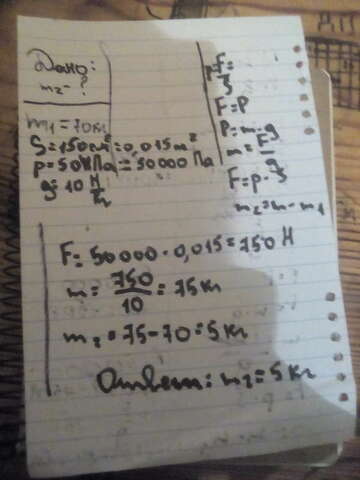 Дано:
m₂-?
m₁=70кг
S=150см²=0,015м²
p=50кПа=50000 Па
g=10 Н/кг
p=F/S
F=P
P=m·g
m=F/g
F=p·S
m₂=m-m₁
F=50000·0,015=750 Н
m=750/10=75кг
m₂=75-70=5кг
Ответ: m₂=5кг